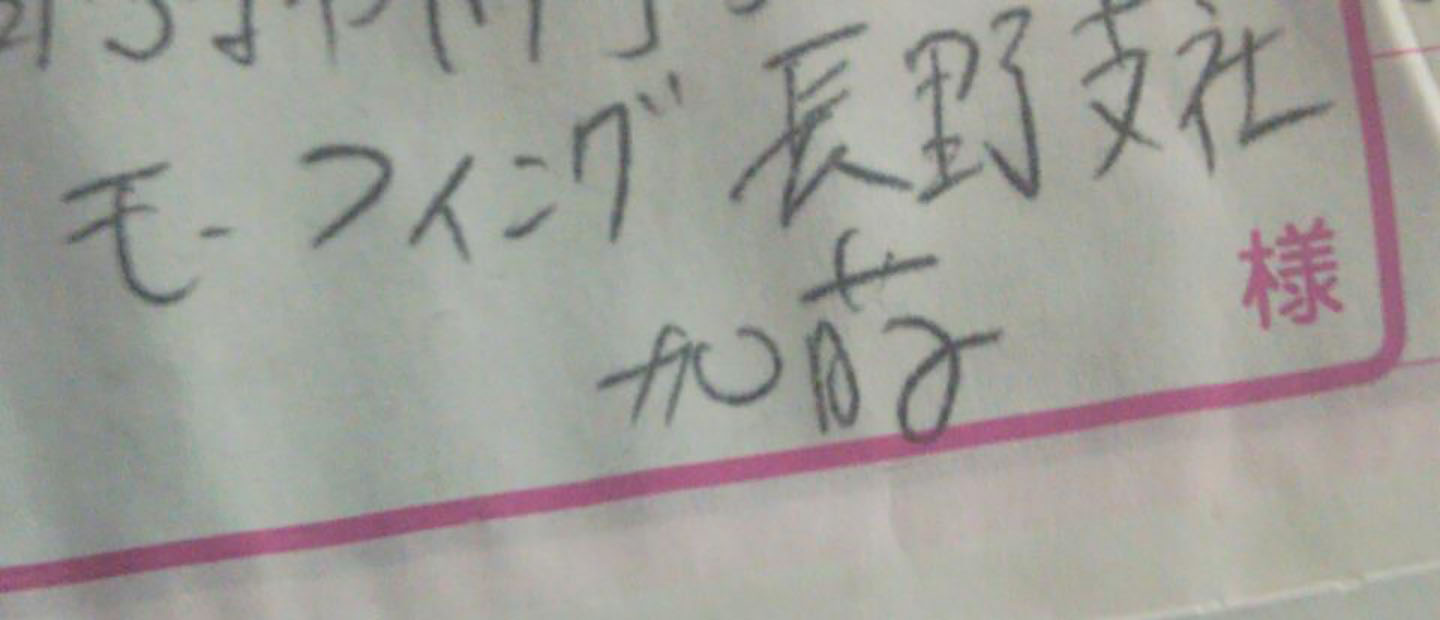 モーフィング 長野支社
様
加藤